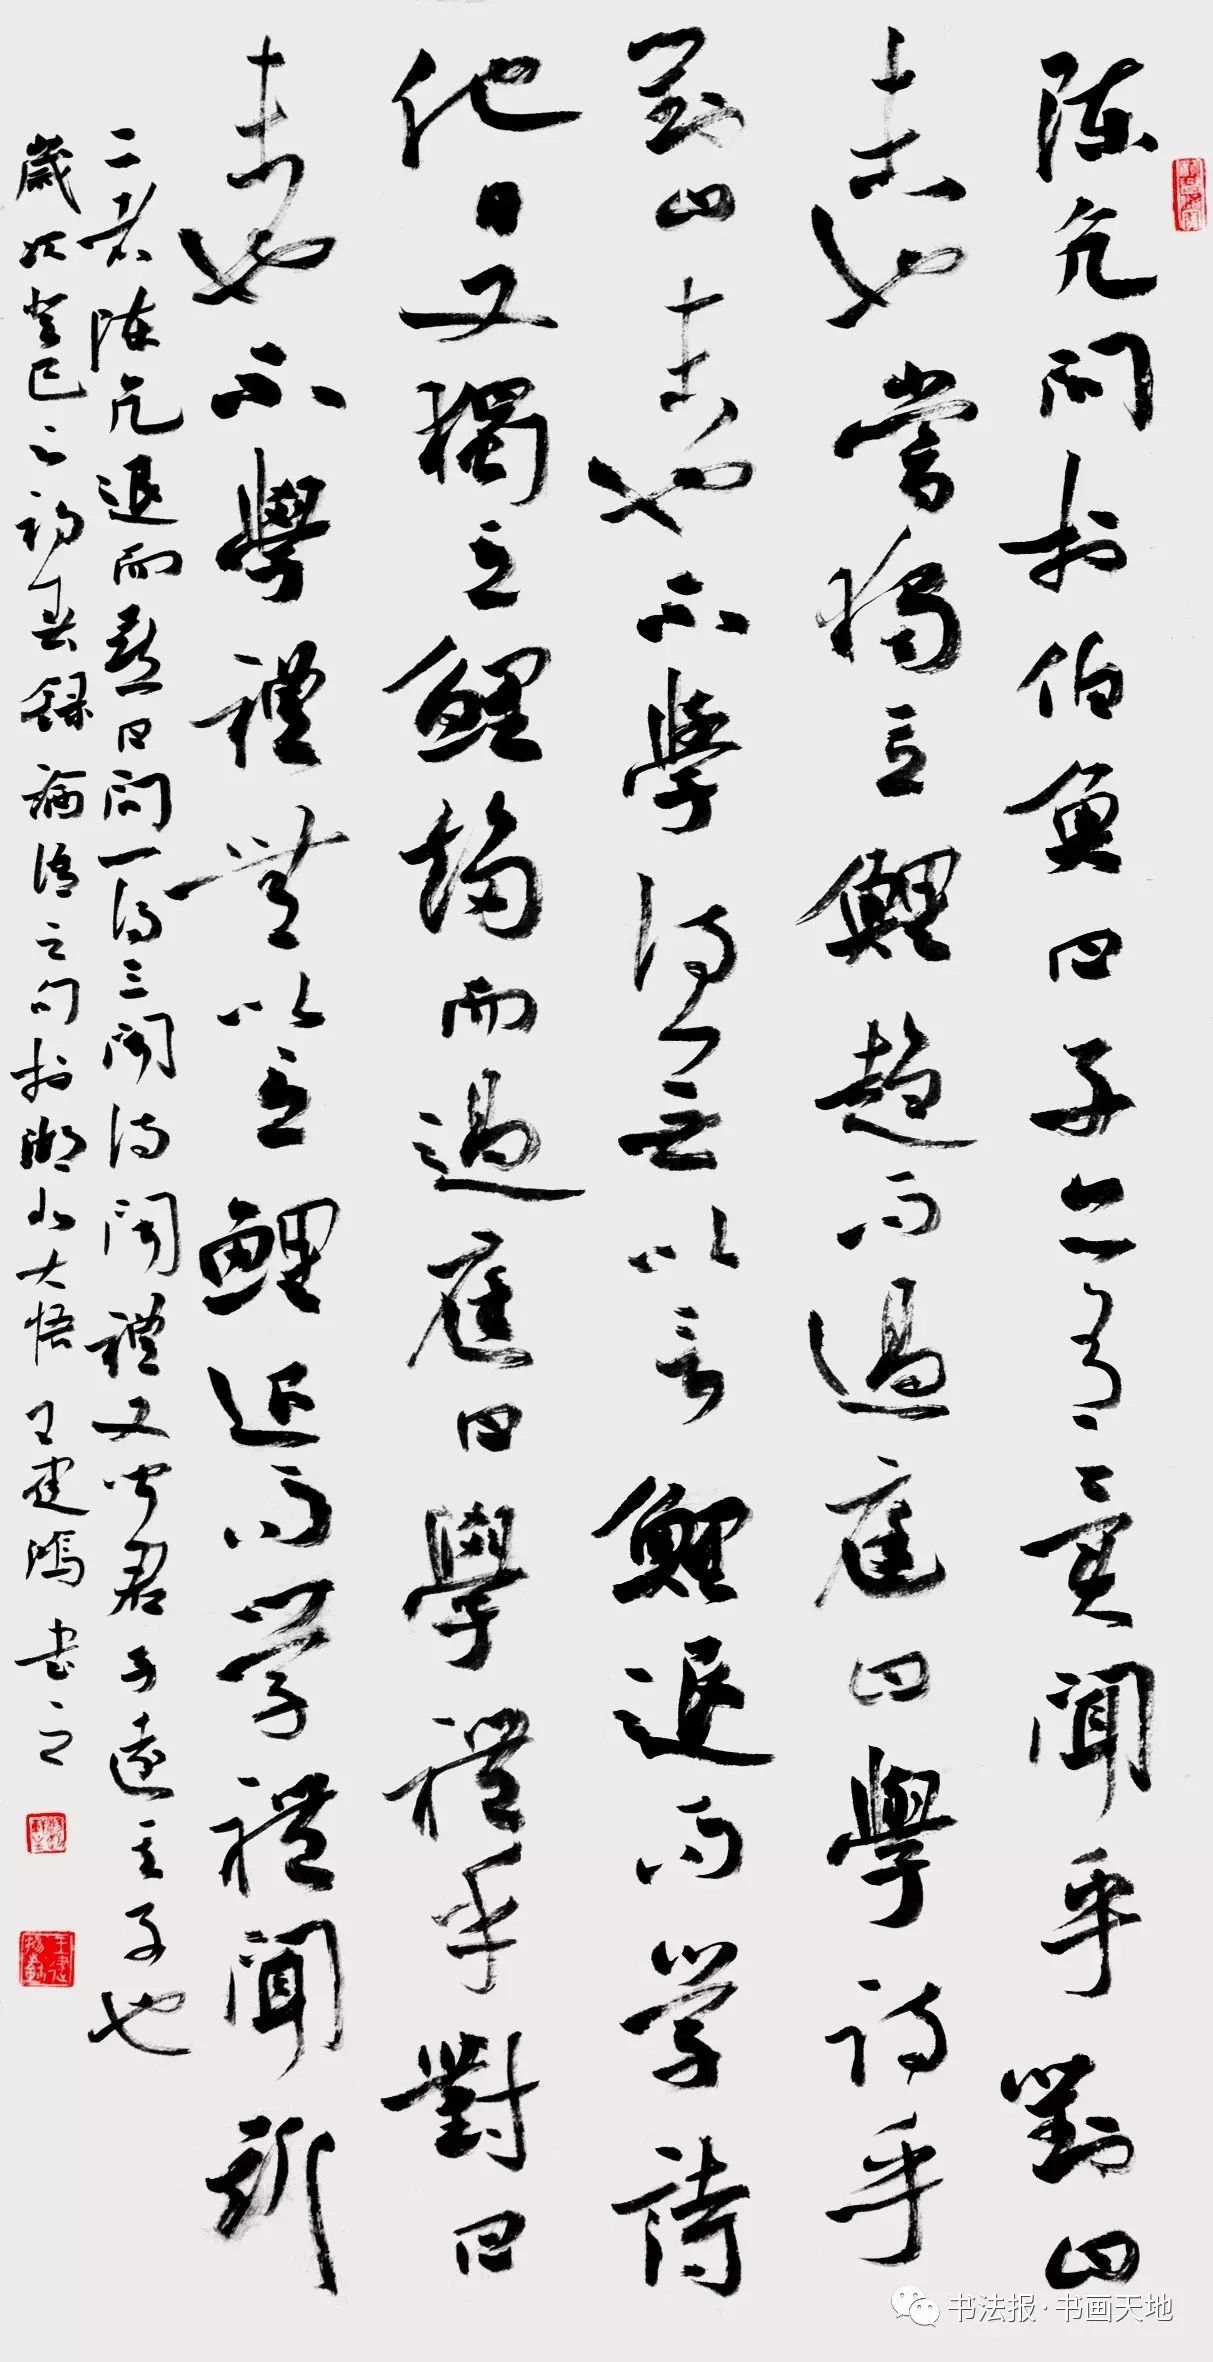 陳亢問於伯魚曰子亦有異聞乎對曰
未也嘗獨立鯉趨而過庭曰學詩乎
對曰未也不學詩無以言鯉退而學詩
他日又獨立鯉趨而過庭曰學禮乎對曰
未也不學禮無以立鯉退而学禮聞斯
二者陳亢退而喜曰問一得三聞詩聞禮又聞君子遠其子也
歲次癸巳之初春錄論語之句於湖北大悟王建鴻書之
书法报·书画天地